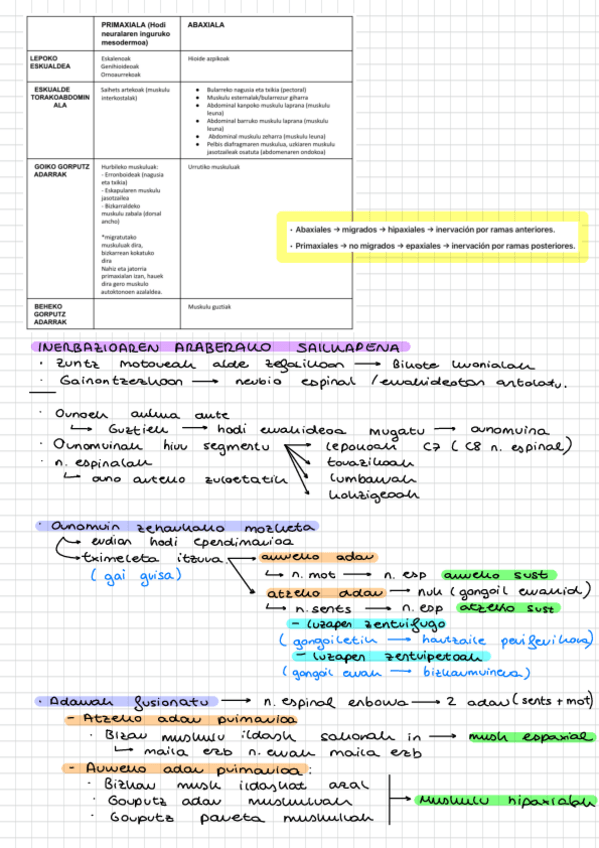 PRIMAXIALA (Hodi neuralaren inguruko mesodermoa)
ABAXIALA
LEPOKO ESKUALDEA
Eskalenoak
Genihioideoak
Ornoaurrekoak
Hioide azpikoak
ESKUALDE TORAKOABDOMINALA
Saihets artekoak (muskulu interkostalak)
● Bularreko nagusia eta txikia (pectoral)
● Muskulu esternalak/bularrezur giharra
● Abdominal kanpoko muskulu laprana (muskulu leuna)
● Abdominal barruko muskulu laprana (muskulu leuna)
● Abdominal muskulu zeharra (muskulu leuna)
● Pelbis diafragmaren muskulua, uzkiaren muskulu jasotzaileak osatuta (abdomenaren ondokoa)
GOIKO GORPUTZ ADARRAK
Hurbileko muskuluak:
- Erronboideak (nagusia eta txikia)
- Eskapularen muskulu jasotzailea
- Bizkarraldeko muskulu zabala (dorsal ancho)
*migratutako muskuluak dira, bizkarrean kokatuko dira
Nahiz eta jatorria primaxialan izan, hauek dira gero muskulo autoktonoen azalaldea.
Urrutiko muskuluak
BEHEKO GORPUTZ ADARRAK
Muskulu guztiak
· Abaxiales → migrados → hipaxiales → inervación por ramas anteriores.
· Primaxiales → no migrados → epaxiales → inervación por ramas posteriores.
INERBAZIOAREN ARABERAKO SAILKAPENA
· Zuntz motoreak alde zefalikoan → Bikote kranialak
· Gainontzekoan → nerbio espinal / errakideetan antolatu.
· Ornoek aurma aute
↳ Guztien → hodi errakideoa mugatu → ornomuina
· Ornomuinak hiru segmentu → lepokoak C7 (C8 n. espinal)
torazikoak
lumbarrak
kokzigeoak
· n. espinalak
↳ orno arteko zuloetatik
· Ornomuin zeharkako mozketa
→ erdian hodi ependimarioa
→ tximeleta itzura
(gai grisa)
aurreko adar
↳ n. mot → n. esp aurreko sust
atzeko adar → nuk (gongoil errakid)
↳ n. sents → n. esp atzeko sust
- luzapen zentrifugo
(gongoiletik → hartzaile periferikora)
- luzapen zentripetoak
(gongoil erran → bizkarmuinera)
· Adarrak fusionatu → n. espinal enborra → 2 adar (sents + mot)
- Atzeko adar primarioa
· Bizkar muskulu ildask sakonak in → musk epaxial
↳ maila ezb n. erran maila ezb
- Aurreko adar primarioa:
· Bizkar musk ildaskat azal
· Gorputz adar muskuluak
· Gorputz pareta muskuluak
→ Muskulu hipaxialak